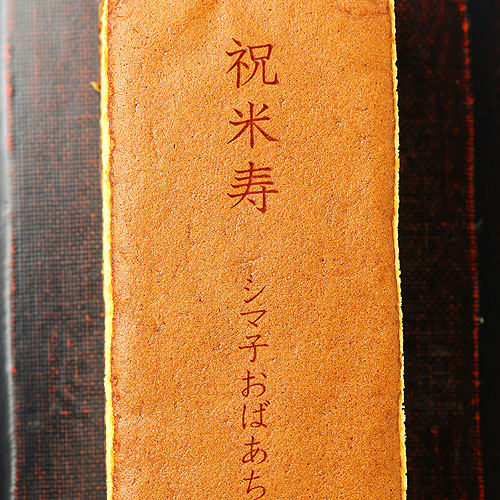 祝米寿
シマ子おばあち